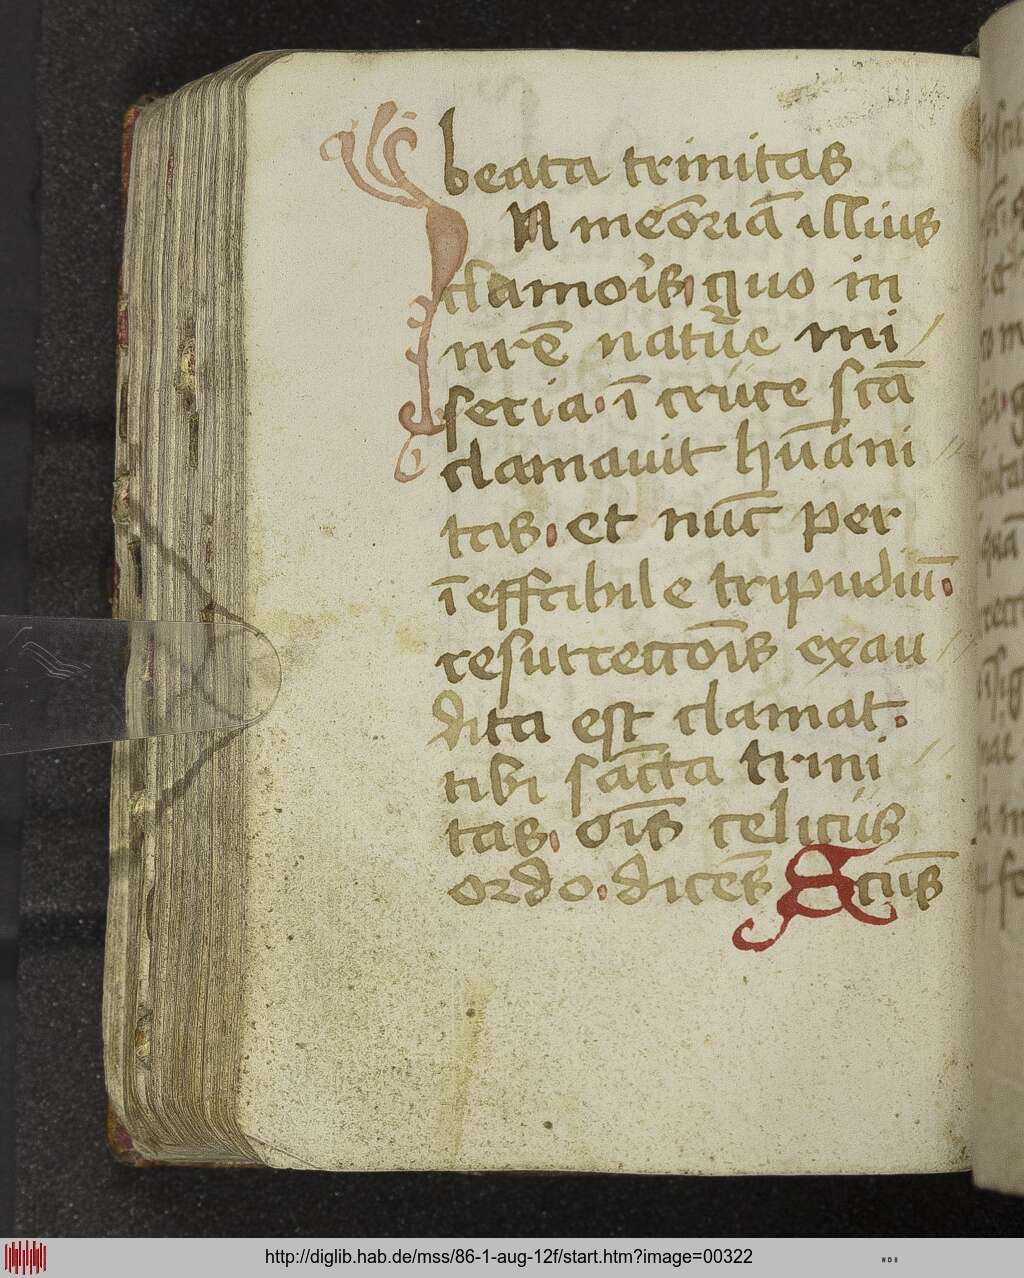 beata trinitas
IN meōriā illius
clamoīs, quo in
nrē natūe mi/
seria. ī cruce scā
clamavit hūani//
tas, et nūc per
īeffabile tripudiū.
resurrectōis exau//
dita est clamat.
tibi sācta trini//
tas, oīs celicūs
ordo. dicēs Scūs
http://diglib.hab.de/mss/86-1-aug-12f/start.htm?image=00322